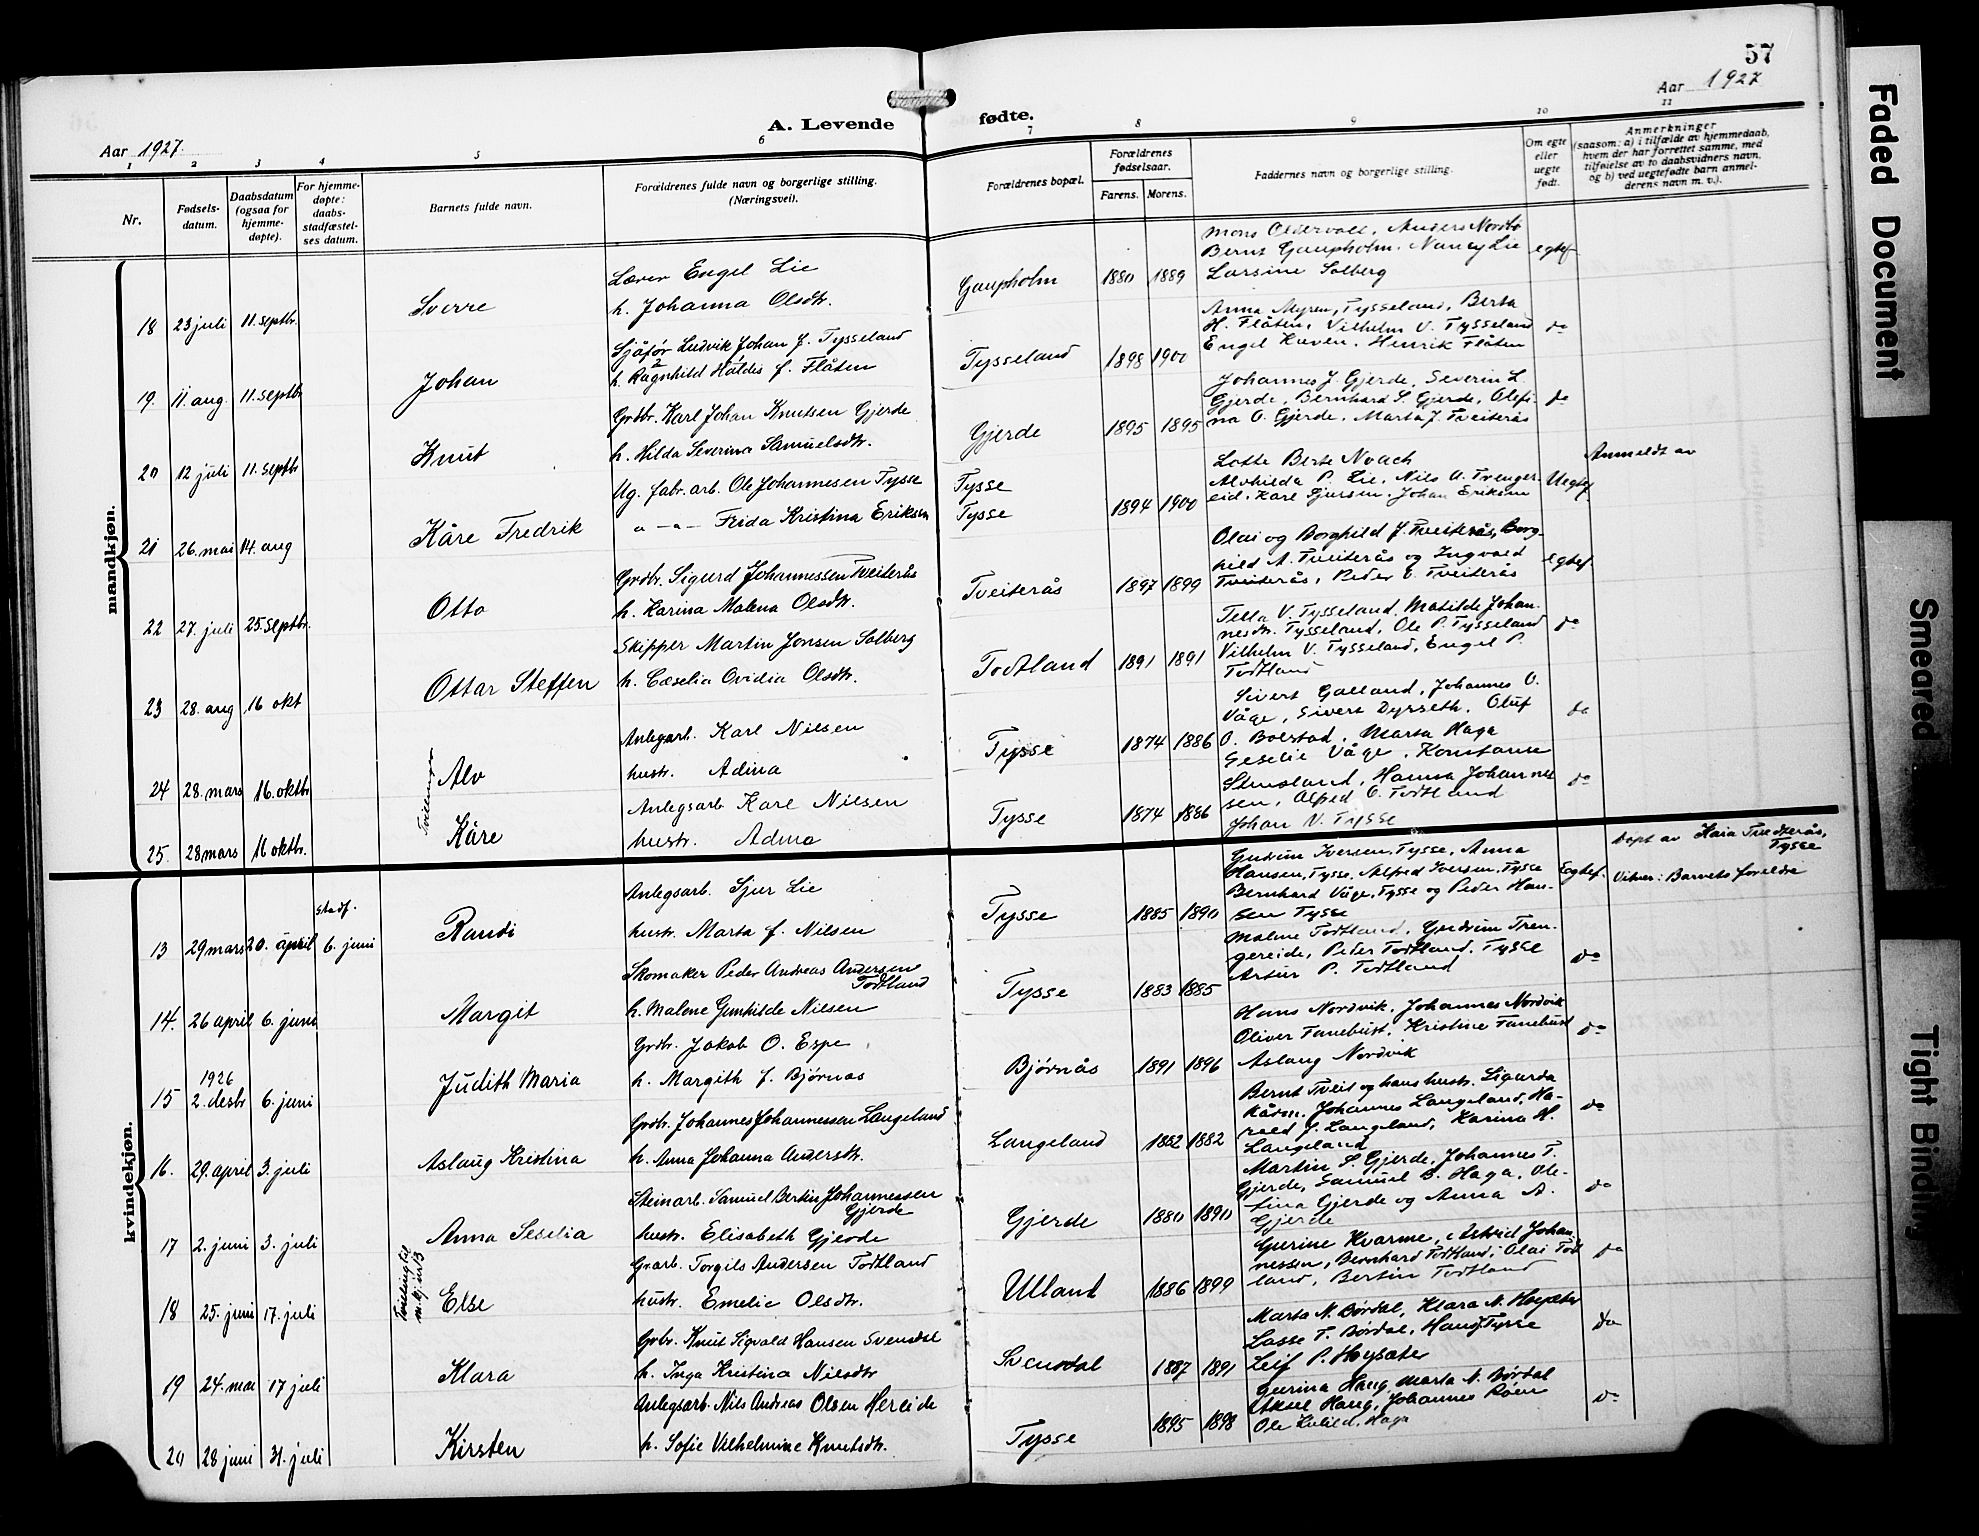 57
Aar 1927.
A. Levende fødte.
Aar 1927
1 2 3 4 5 6 7 8 9 10 11
Nr.
Fødsels-
datum.
Daabsdatum
(ogsaa for
hjemme-
døpte).
For hjemme-
døpte:
daabs-
stadfæstel-
ses datum.
Barnets fulde navn.
Forældrenes fulde navn og borgerlige stilling.
(Næringsvei).
Forældrenes bopæl.
Forældrenes
fødselsaar.
Farens. Morens.
Faddernes navn og borgerlige stilling.
Om egte
eller
uegte
født.
Anmerkninger
(saasom: a) i tilfælde av hjemmedaab,
hvem der har forrettet samme, med
tilføielse av to daabsvidners navn,
og b) ved uegtefødte barn anmel-
derens navn m. v.).
mandkjøn.
18 23 juli 11. septbr. Sverre
Lærer Engel Lie
h. Johanna Olsdtr.
Gaupholm 1880 1889
Mons Oldervoll, Anders Nordbø
Bernt Gaupholm. Nancy Lie
Larsine Solberg
egtef
19. 11. aug. 11. septbr Johan
Sjåfør Ludvik Johan J. Tysseland
h. Ragnhild Haldis f. Flåten
Tysseland 1898 1900
Anna Myren, Tysseland, Berta
H. Flåten, Vilhelm V. Tysseland
Engel Kaven. Henrik Flåten
do
20 12 juli 11. septbr Knut
Grdbr. Karl Johan Knutsen Gjerde
h. Hilda Severina Samuelsdtr.
Gjerde 1895 1895
Johannes J. Gjerde, Severin L.
Gjerde, Bernhard S. Gjerde, Olefi-
na O. Gjerde, Marta J. Tveiterås
do
21 26. mai 14. aug Kåre Fredrik
Ug. fabr. arb. Ole Johannesen Tysse
" - " - Frida Kristina Eriksen
Tysse
Tysse 1894 1900
Lotte Berte Noach
Alvhilda P. Lie, Nils A. Trenger-
eid, Karl Sjursen, Johan Eriksen
Uegtef
Anmeldt av
22 27. juli 25. septbr. Otto
Grdbr. Sigurd Johannessen Tveiterås
h. Karina Malena Olsdtr.
Tveiterås 1897 1899
Olai og Borghild J. Tveiterås, Borg-
hild A. Tveiterås og Ingvald
Tveiterås, Peder O. Tveiterås
egtef
23 28. aug 16 okt Ottar Steffen
Skipper Martin Jonsen Solberg
h. Cæselia Ovidia Olsdtr.
Todtland 1891 1891
Tella V. Tysseland, Matilde Johan-
nesdtr. Tysseland, Ole P. Tysseland
Vilhelm V. Tysseland, Engel P.
Todtland
do
24 28. mars 16. oktbr Alv
Tvillinger
Anlegsarb. Karl Nilsen
hustr. Adina
Tysse 1874 1886
Sivert Galland, Johannes O.
Våge, Sivert Dyrseth, Oluf
O. Bolstad, Marta Haga
do
25. 28 mars 16 oktbr. Kåre
Anlegsarb Karl Nilsen
hustr. Adina
Tysse 1874 1886
Geselie Våge, Konstanse
Stensland, Hanna Johannes
sen, Alfred O. Todtland
Johan N. Tysse
do
kvindekjøn.
13 29 mars 20. april stadf. 6. juni Randi
Anlegsarb. Sjur Lie
hustr. Marta f. Nilsen
Tysse 1885 1890
Gudrun Iversen, Tysse, Anna
Hansen, Tysse, Alfred Iversen, Tysse
Bernhard Våge, Tysse og Peder Han-
sen Tysse
Egtef.
Døpt av Kaia Tvedterås,
Tysse
Vitner: Barnets foreldre
14. 26 april 6. juni Margit
Skomaker Peder Andreas Andersen
Todtland
h. Malene Gunhilde Nilsen
Tysse 1883 1885
Malme Todtland, Gudrun Tren-
gereide, Peder Todtland, Tysse
Artur P. Todtland
do
15 1926
2. desbr 6. juni Judith Maria
Grdbr. Jakob O. Espe
h. Margith f. Bjørnås
Bjørnås 1891 1896
Hans Nordvik, Johannes Nordvik
Oliver Tanebust, Kristine Tanebust
Aslaug Nordvik
do
16. 29. april 3. juli Aslaug Kristina
Grdbr. Johannes Johannessen Langeland
h. Anna Johanna Andersdtr.
Langeland 1882 1882
Bernt Tveit og hans hustr. Sigurda
Kårm. Johannes Langeland, Ha-
rald J. Langeland, Karina H.
Langeland
do
17 2. juni 3. juli Anna Seselia
Steinarb. Samuel Bertin Johannessen
Gjerde
hustr. Elisabeth Gjerde
Gjerde 1880 1890
Martin S. Gjerde, Johannes T.
Gjerde, Samuel B. Haga, Ole-
fina Gjerde og Anna A.
Gjerde
do
18 25. juni 17. juli Else
Tvilling til
m. kj. nr. 13
Grarb. Torgils Andersen Todtland
hustr. Emelie Olsdtr.
Ulland 1886 1899
Gurine Kvarme, Astrid Johan-
nessen, Bernhard Todtland, Olai Todt
land, Bertin Todtland
do
19 24. mai 17 juli Klara
Grbr. Knut Sigvald Hansen Svensdal
h. Inga Kristina Nilsdtr
Svensdal 1887 1891
Marta N. Børdal, Klara N. Høysæter
Lasse T. Børdal, Hans J. Tysse
Leif P. Høysæter
do
20 28 juni 31. juli Kirsten
Anlegsarb. Nils Andreas Olsen Hereide
h. Sofie Vilhelmine Knutsdtr.
Tysse 1895 1898
Gurina Haug, Marta N. Børdal
Aksel Haug, Johannes Røen
Ole Haga
do
Faded Document
Smeared
Tight Binding